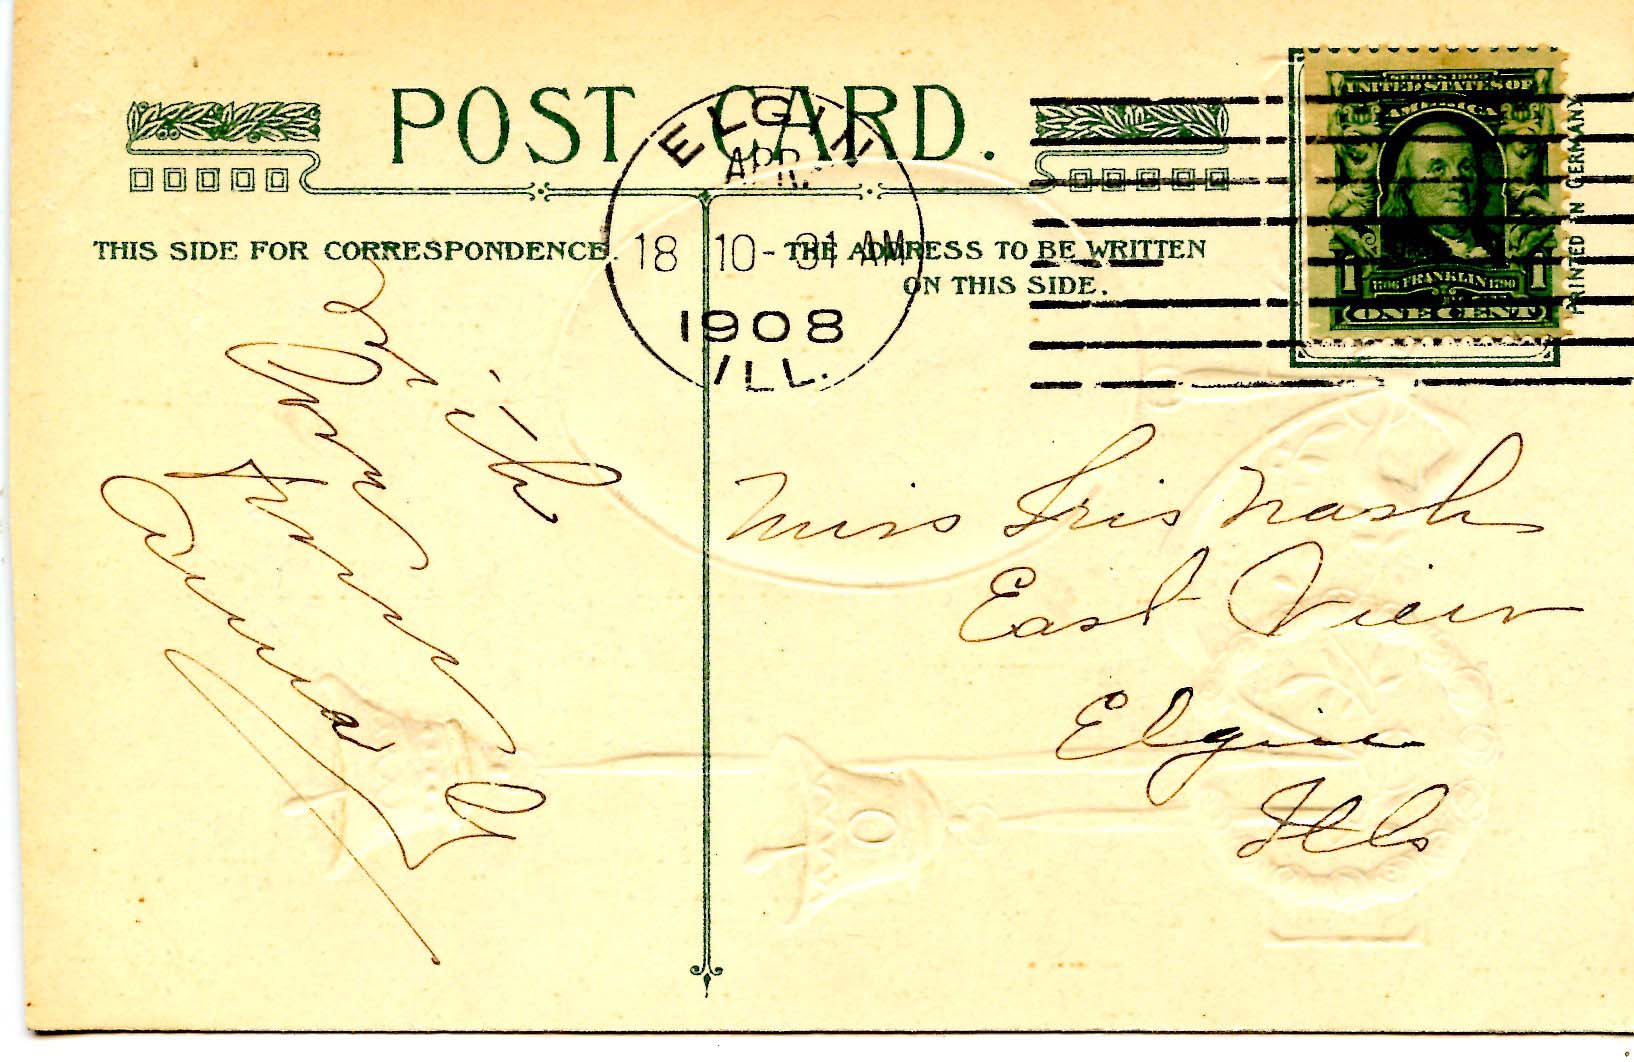 POST CARD.
ELGIN
APR
18 10-31 AM
1908
ILL.
THIS SIDE FOR CORRESPONDENCE.
THE ADDRESS TO BE WRITTEN
ON THIS SIDE.
UNITED STATES OF
AMERICA
1706 FRANKLIN 1790
1 1
ONE CENT
PRINTED IN GERMANY
Miss Iris Nash
East View
Elgin
Ills